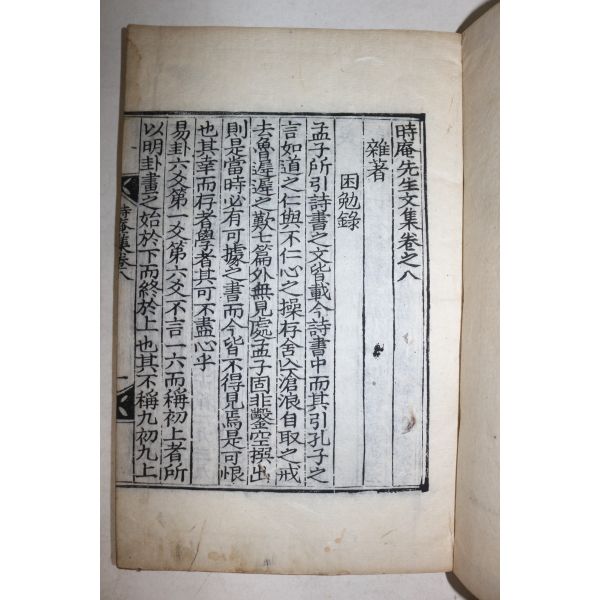 時庵先生文集卷之八
雜著
困勉錄
孟子所引詩書之文皆載今詩書中而其引孔子之
言如道之仁與不仁心之操存舍亡滄浪自取之戒
去魯遲遲之歎七篇外無見處孟子固非鑿空撰出
則是當時必有可據之書而今皆不得見焉是可恨
也其幸而存者學者其可不盡心乎
易卦六爻第一爻第六爻不言一六而稱初上者所
以明卦畫之始於下而終於上也其不稱九初九上
時庵集卷八
一